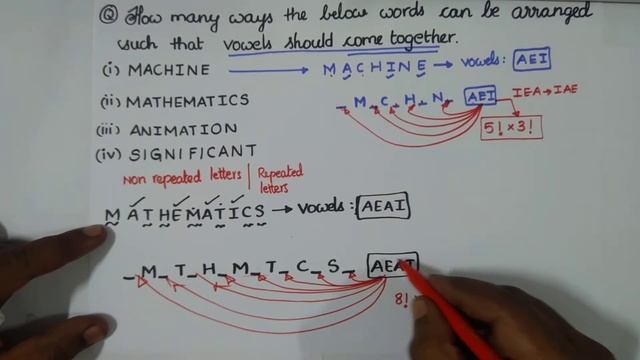 Q How many ways the below words can be arranged
such that vowels should come together.
(i) MACHINE → MACHINE → vowels: AEI
(ii) MATHEMATICS _ M _ C _ H _ N _ AEI IEA → IAE
5! × 3!
(iii) ANIMATION
(iv) SIGNIFICANT
Non repeated letters | Repeated letters
MATHEMATICS → vowels: AEAI
_ M _ T _ H _ M _ T _ C _ S _ AEAI
8!